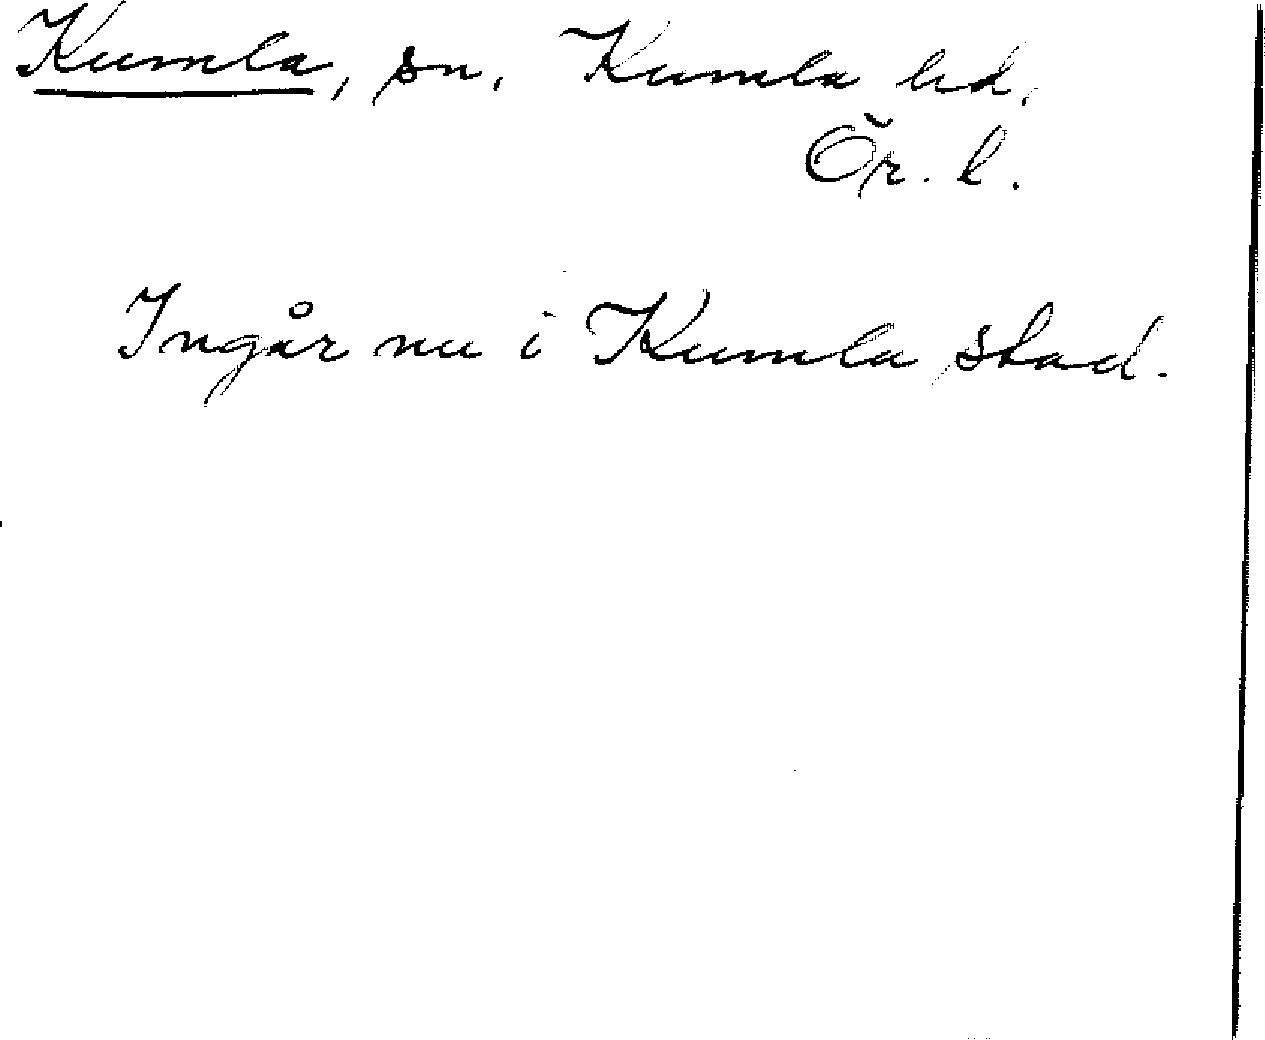 Kumla, sn, Kumla hd,
Ör. l.
Ingår nu i Kumla stad.